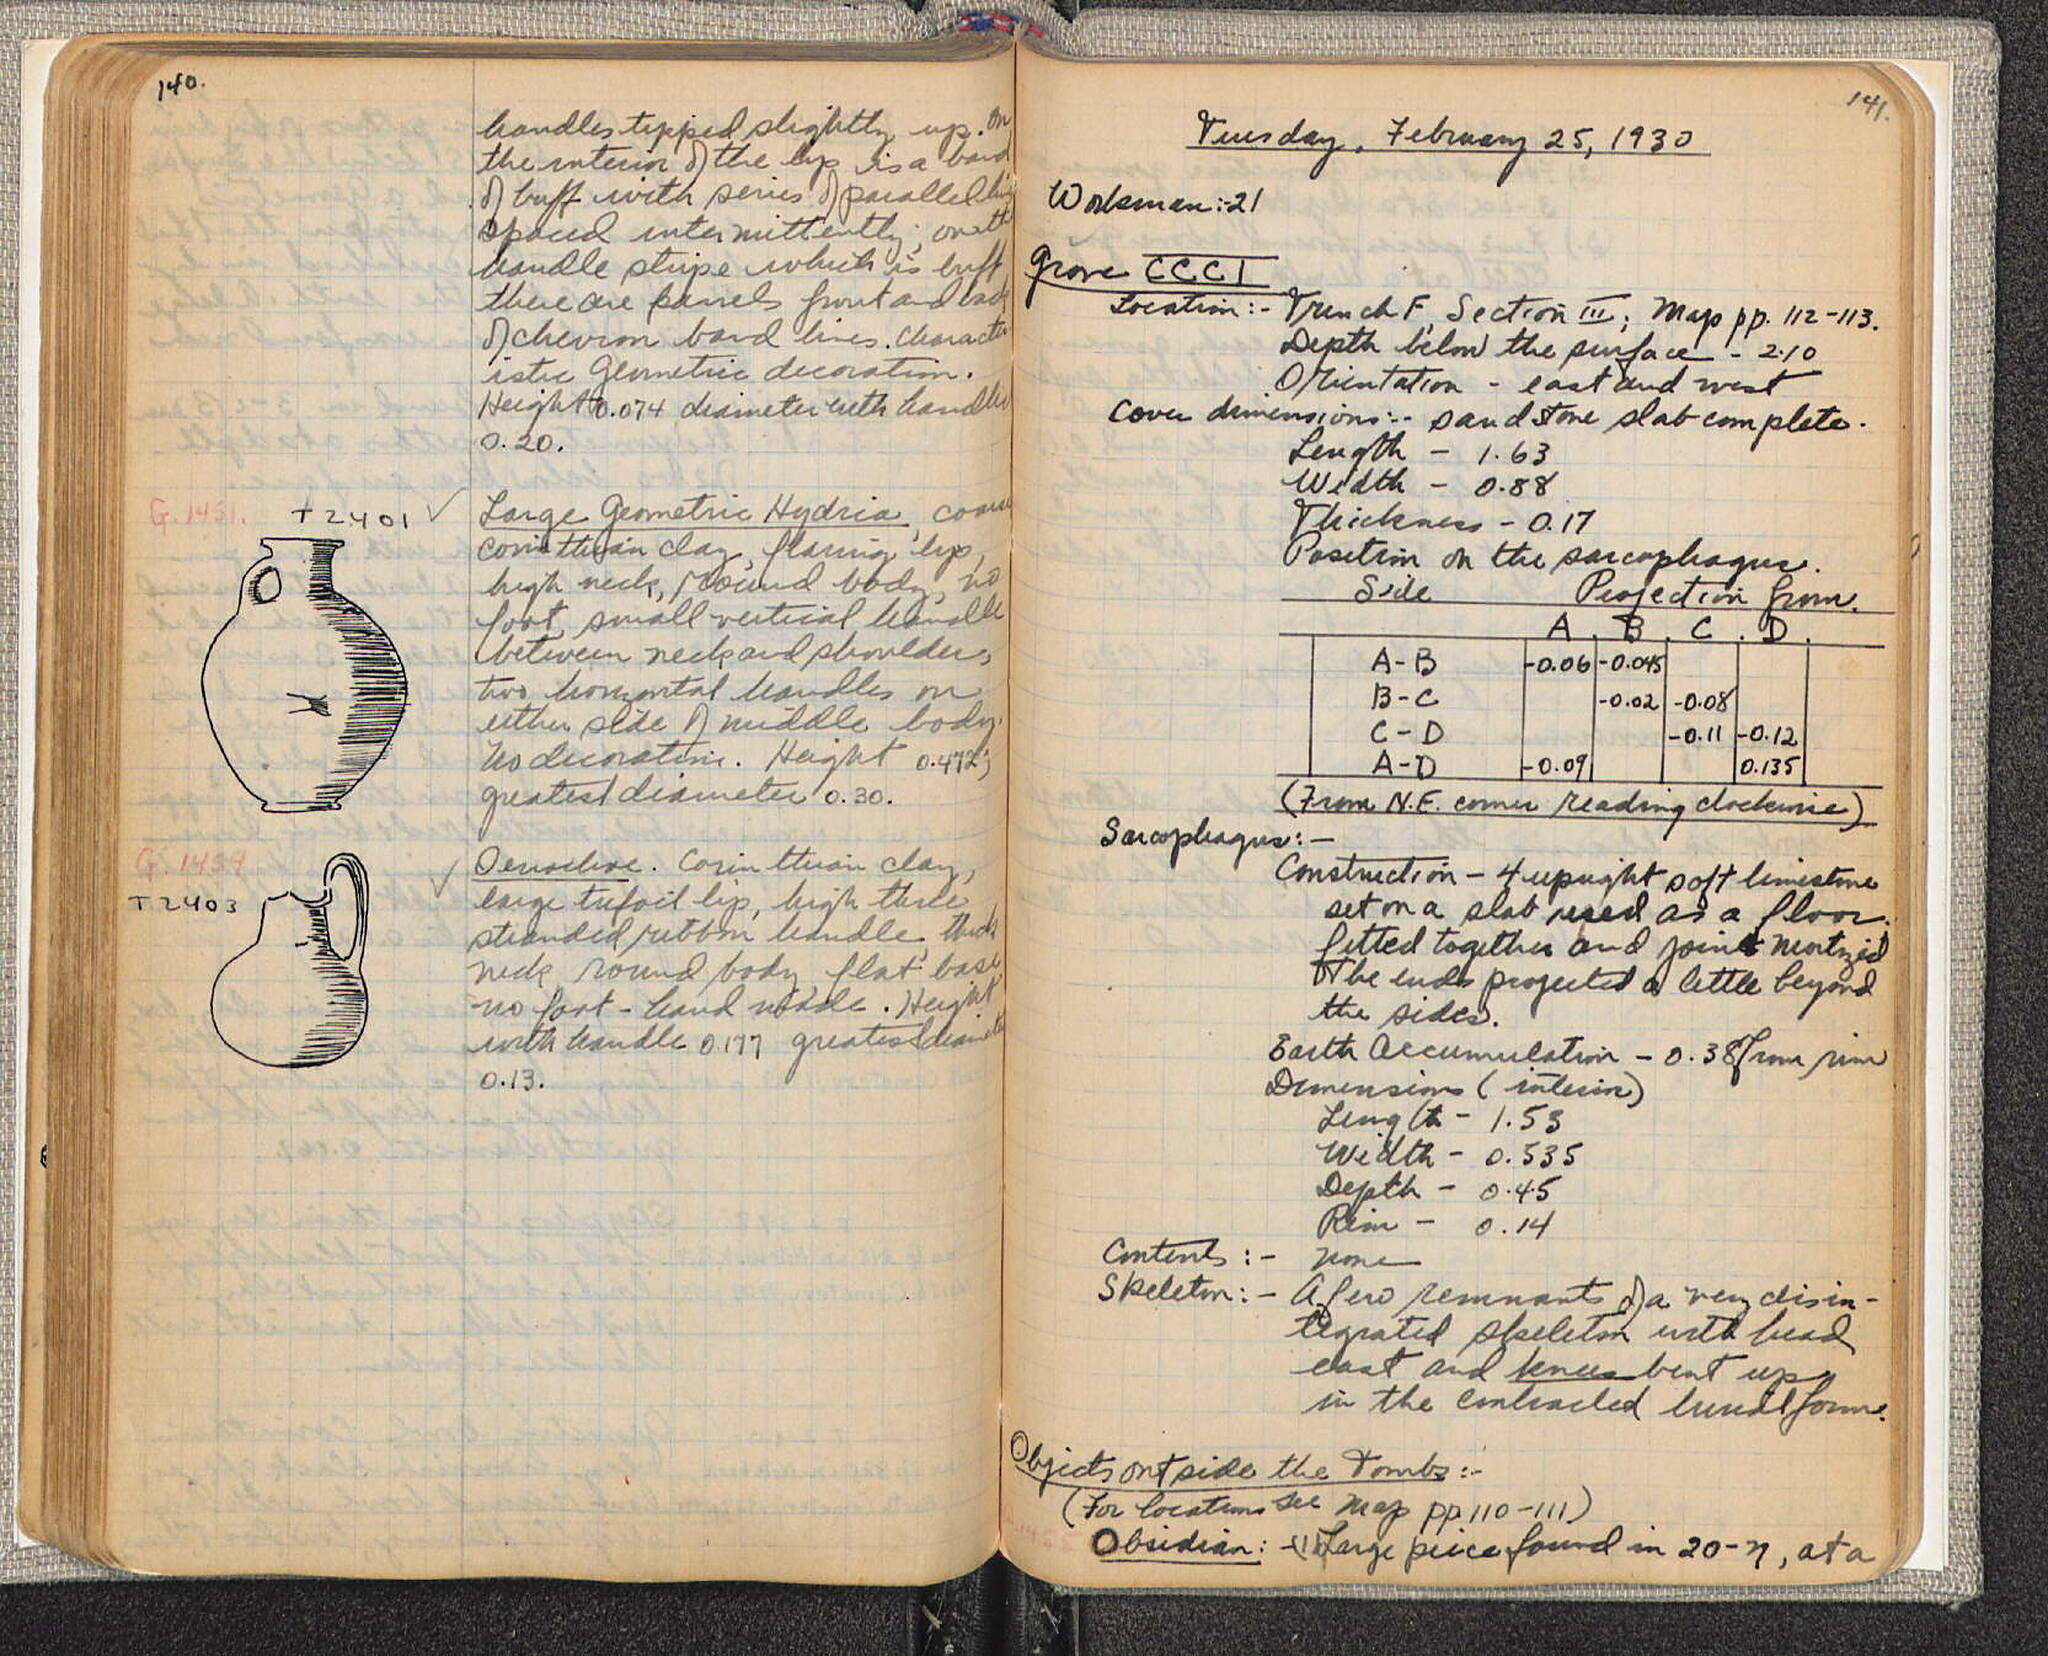 140.
handles tipped slightly up. On
the interior of the lip is a band
of buff with series of parallel
spaced intermittently; on the
handle stripe which is buff
there are panels front and back
of chevron band lines. Character
istic Geometric decoration.
Height 0.074 diameter with handles
0.20.
G. 1431. T 2401 ✓ Large Geometric Hydria, coarse
Corinthian clay, flaring lip,
high neck, round body, no
foot, small vertical handle
between neck and shoulder,
two horizontal handles on
either side of middle body.
No decoration. Height 0.472;
greatest diameter 0.30.
G. 1434.
T 2403 ✓ Oenochoe. Corinthian clay,
large trefoil lip, high three
stranded ribbon handle, thick
neck, round body, flat base
no foot - hand made. Height
with handle 0.177 greatest diameter
0.13.
141.
Tuesday, February 25, 1930
Workmen:- 21
Grave CCCI
Location:- Trench F, Section III; Map pp. 112-113.
Depth below the surface - 2.10
Orientation - east and west
Cover dimensions:- sandstone slab complete.
Length - 1.63
Width - 0.88
Thickness - 0.17
Position on the sarcophagus.
Side Projection from.
A. B. C. D.
A-B -0.06 -0.045
B-C -0.02 -0.08
C-D -0.11 -0.12
A-D -0.09 0.135
(From N.E. corner reading clockwise)
Sarcophagus:-
Construction - 4 upright soft limestone
set on a slab used as a floor.
fitted together and joints mortized
The ends projected a little beyond
the sides.
Earth Accumulation - 0.38 from rim
Dimensions (interior)
Length - 1.53
Width - 0.535
Depth - 0.45
Rim - 0.14
Contents:- none
Skeleton:- A few remnants of a very disin-
tegrated skeleton with head
east and knees bent up
in the contracted burial form.
Objects outside the Tombs:-
(For locations see Map pp 110-111)
Obsidian: - (1) Large piece found in 20-η, at a